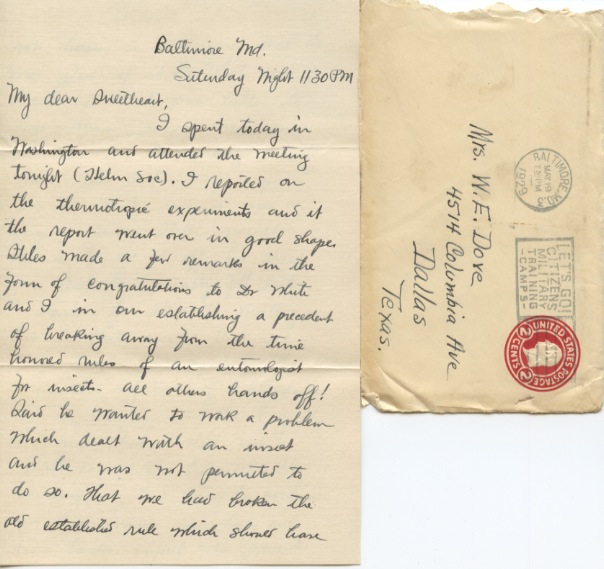 Baltimore Md.
Saturday Night 11 30 PM
My dear Sweetheart,
I spent today in
Washington and attended the meeting
tonight (Helm Soc). I reported on
the thermotropic experiments and it
the report went over in good shape.
Stiles made a few remarks in the
form of congratulations to Dr White
and I in our establishing a precedent
of breaking away from the time
honored rules of an entomologist
for insects - all others hands off!
Said he wanted to work a problem
which dealt with an insect
and he was not permitted to
do so. That we had broken the
old established rule which should have
Mrs. W. E. Dove
4514 Columbia Ave
Dallas
Texas.
BALTIMORE, MD. 3
MAY 19
PM
1929
LET'S GO!
CITIZENS
MILITARY
TRAINING
-CAMPS-
UNITED STATES POSTAGE
2 CENTS 2